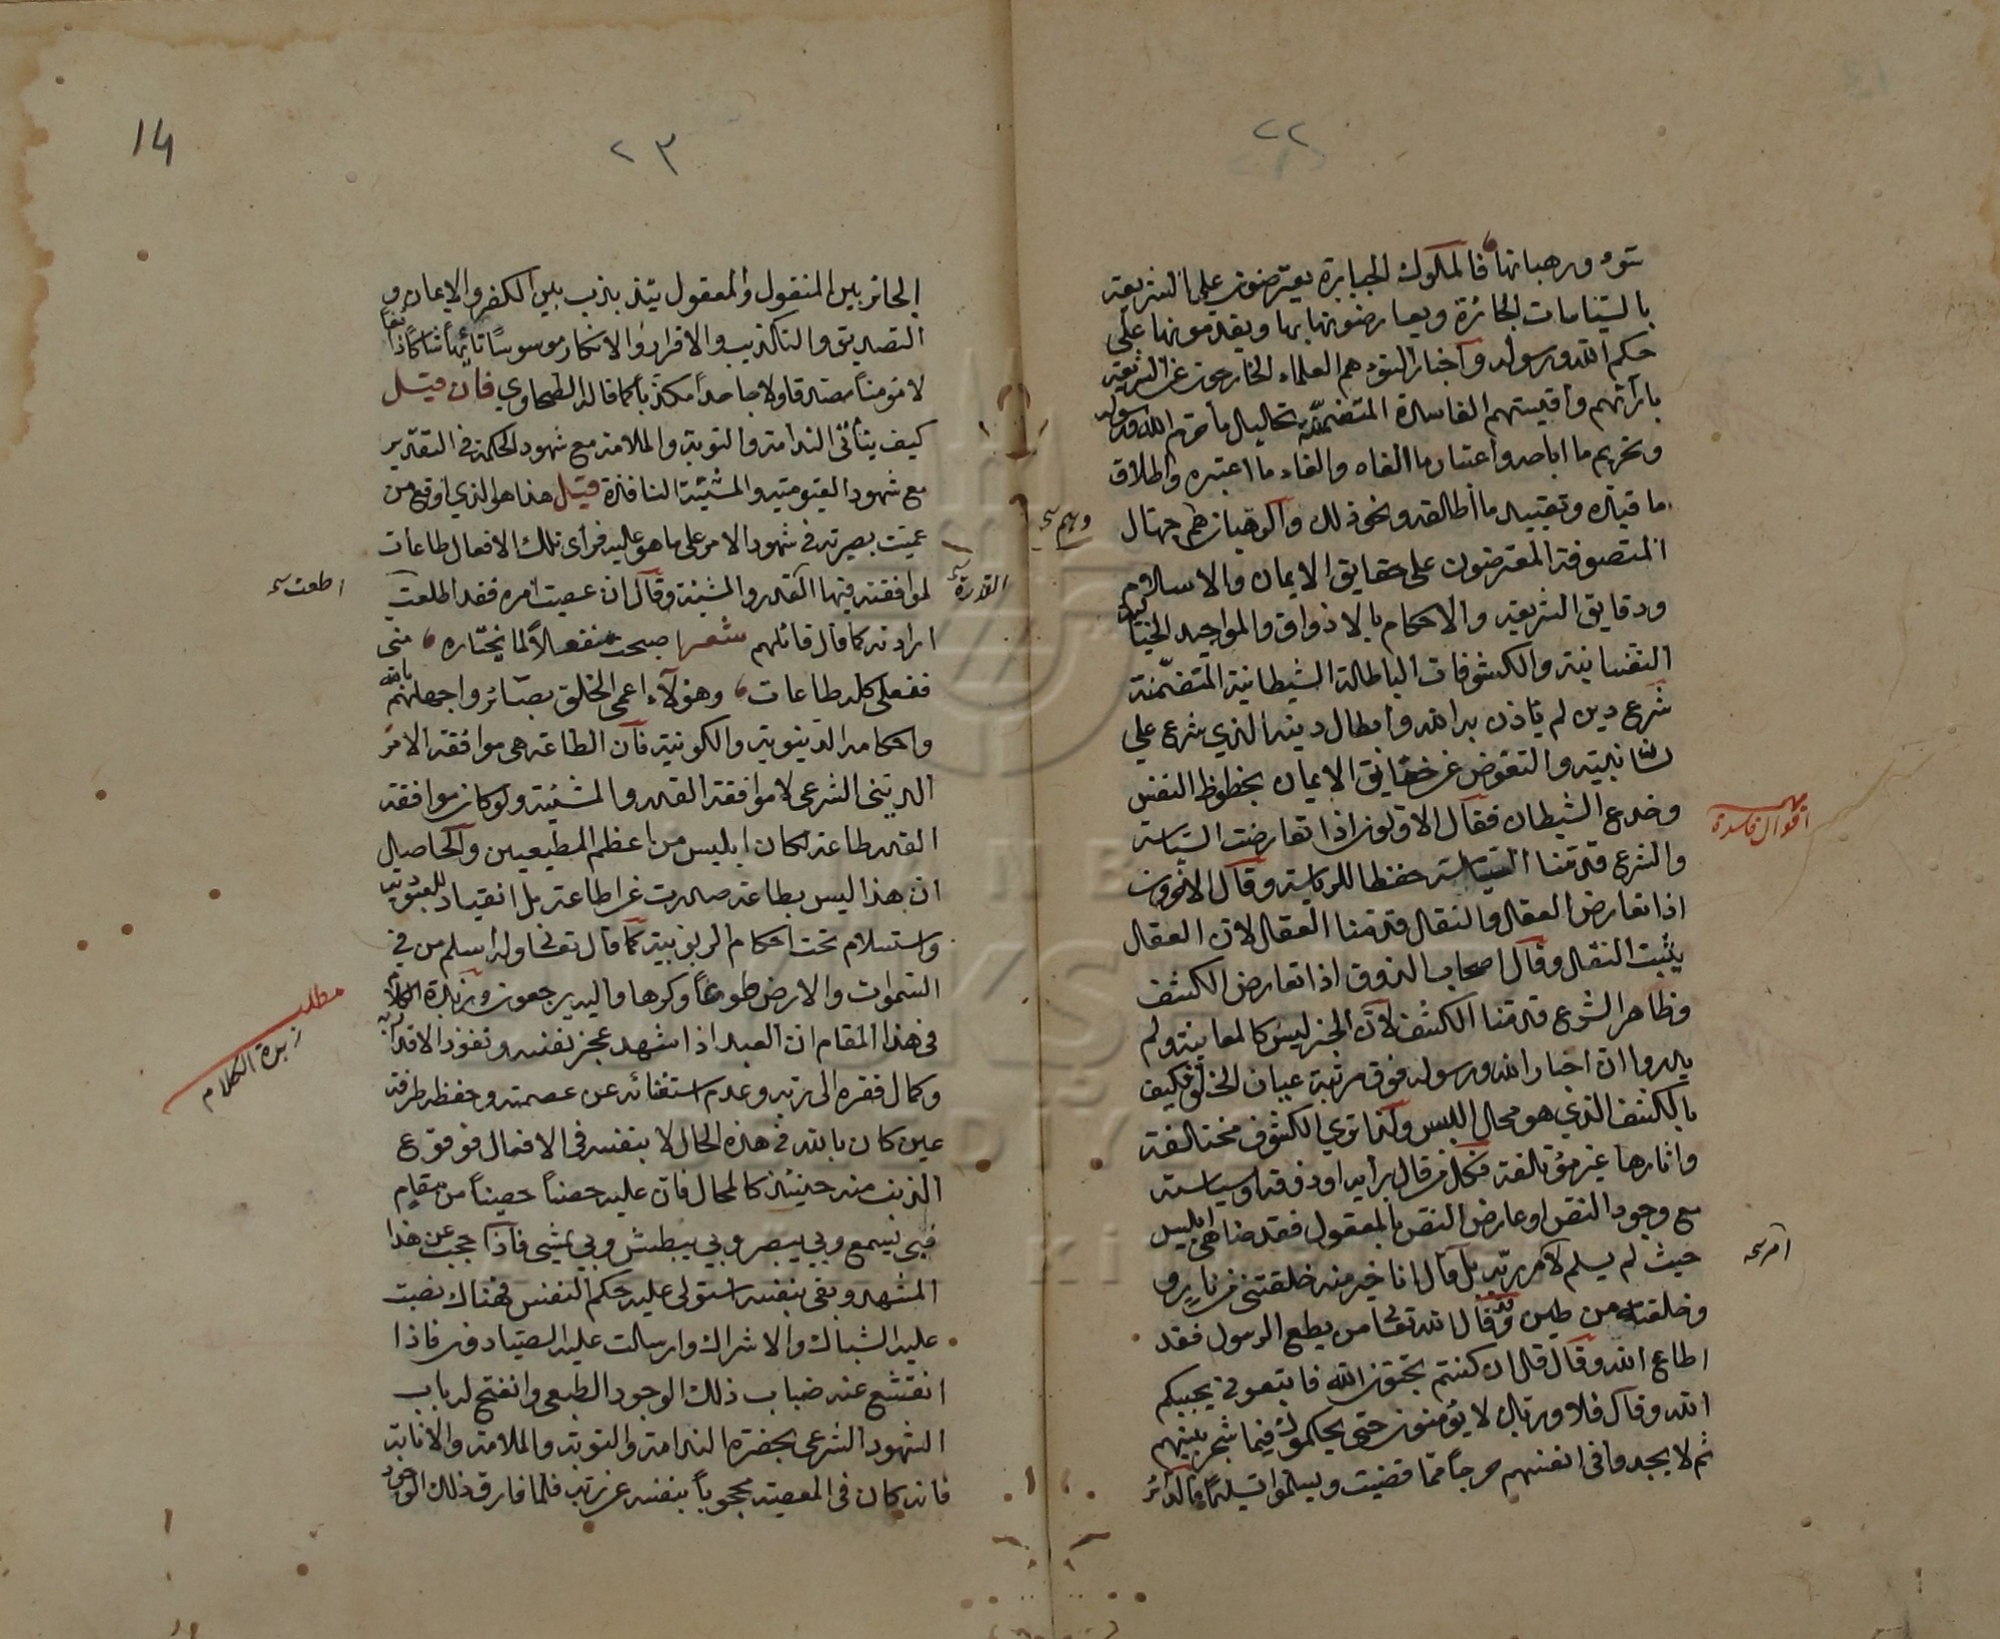 ٢٢
سوء ورهبانها فالملوك الجبابرة يعترضون على الشريعة
بالسياسات الجائرة ويعارضونها بها ويقدمونها على
حكم الله ورسوله وأحبار السوء هم العلماء الخارجون عن الشريعة
بآرائهم وأقيستهم الفاسدة المتضمنة تحليل ما حرم الله ورسوله
وتحريم ما اباحه واعتبار ما الغاه والغاء ما اعتبره واطلاق
ما قيده وتقييد ما أطلقه ونحو ذلك والرهبان هم جهال
وهم
المتصوفة المعترضون على حقايق الايمان والاسلام
ودقايق الشريعة والاحكام بالاذواق والمواجيد الخيالية
النفسانية والكشوفات الباطلة الشيطانية المتضمنة
شرع دين لم ياذن به الله وابطال دينه الذي شرع على
لسان نبيه والتعوض عن حقايق الايمان بحظوظ النفس
وخدع الشيطان فقال الاولون اذا تعارضت السياسة
مهم
اقوال فاسدة
والشرع قدمنا السياسة حفظا للرياسة وقال الآخرون
اذا تعارض العقل والنقل قدمنا العقل لان العقل
يثبت النقل وقال اصحاب الذوق اذا تعارض الكشف
وظاهر الشرع قدمنا الكشف لان الخبر ليس كالمعاينة ولم
يدروا ان اخبار الله ورسوله فوق مرتبة عيان الخلق فكيف
بالكشف الذي هو محال اللبس ولذا ترى الكشوف مختلفة
واثارها غير مؤتلفة فكل من قال برأيه او ذوقه او سياسته
مع وجود النص او عارض النص بالمعقول فقد ضاهى ابليس
حيث لم يسلم لامر ربه بل قال انا خير منه خلقتني من نار و
وخلقته من طين وقد قال الله تعالى من يطع الرسول فقد
اطاع الله وقال قل ان كنتم تحبون الله فاتبعوني يحببكم
الله وقال فلا وربك لا يؤمنون حتى يحكموك فيما شجر بينهم
ثم لا يجدوا في انفسهم حرجاً مما قضيت ويسلموا تسليماً فالدائر
٢٣
14
الحائر بين المنقول والمعقول يتذبذب بين الكفر والايمان و
التصديق والتكذيب والاقرار والانكار موسوساً تائهاً شاكاً زائغاً
لا مؤمناً مصدقا ولا جاحداً مكذباً كما قاله الطحاوي فان قيل
كيف يتأتى الندامة والتوبة والملامة مع شهود الحكمة في التقدير
مع شهود القيومية والمشيئة النافذة قيل هذا هو الذي اوقع من
عميت بصيرته في شهود الامر على ما هو عليه فرأى تلك الافعال طاعات
لموافقته فيها القدر والمشيئة وقال ان عصيت امره فقد اطلعت
القدرة
اطعت
ارادته كما قال قائلهم شعر اصبحت منفعلاً لما يختاره مني
ففعلي كله طاعات وهؤلاء اعمى الخلق بصائر واجهلهم بالله
واحكامه الدينوية والكونية فان الطاعة هي موافقة الامر
الديني الشرعي لا موافقة القدر والمشيئة ولو كان موافقة
القدر طاعة لكان ابليس من اعظم المطيعين والحاصل
ان هذا ليس بطاعة صدرت عن اطاعة بل انقياد للعبودية
واستسلام تحت احكام الربوبية كما قال تعالى وله اسلم من في
السموات والارض طوعاً وكرها واليه يرجعون وزبدة الكلام
مطلب
زبدة الكلام
في هذا المقام ان العبد اذا شهد عجز نفسه ونفوذ الاقدار به
وكمال فقره الى ربه وعدم استغنائه عن عصمته وحفظه طرفة
عين كان بالله في هذه الحال لا بنفسه في الافعال فوقوع
الذنب منه حينئذ كالمحال فان عليه حصناً حصيناً من مقام
فبي يسمع وبي يبصر وبي يبطش وبي يمشي فاذا حجب عن هذا
المشهد وبقي بنفسه استولى عليه حكم النفس فهناك نصبت
عليه الشباك والاشراك وارسلت عليه الصيادون فاذا
انقشع عنه ضباب ذلك الوجود الطبعي وانفتح له باب
الشهود الشرعي بحضرة الندامة والتوبة والملامة والانابة
فانه كان في المعصية محجوباً بنفسه عن ربه فلما فارق ذلك الوجود